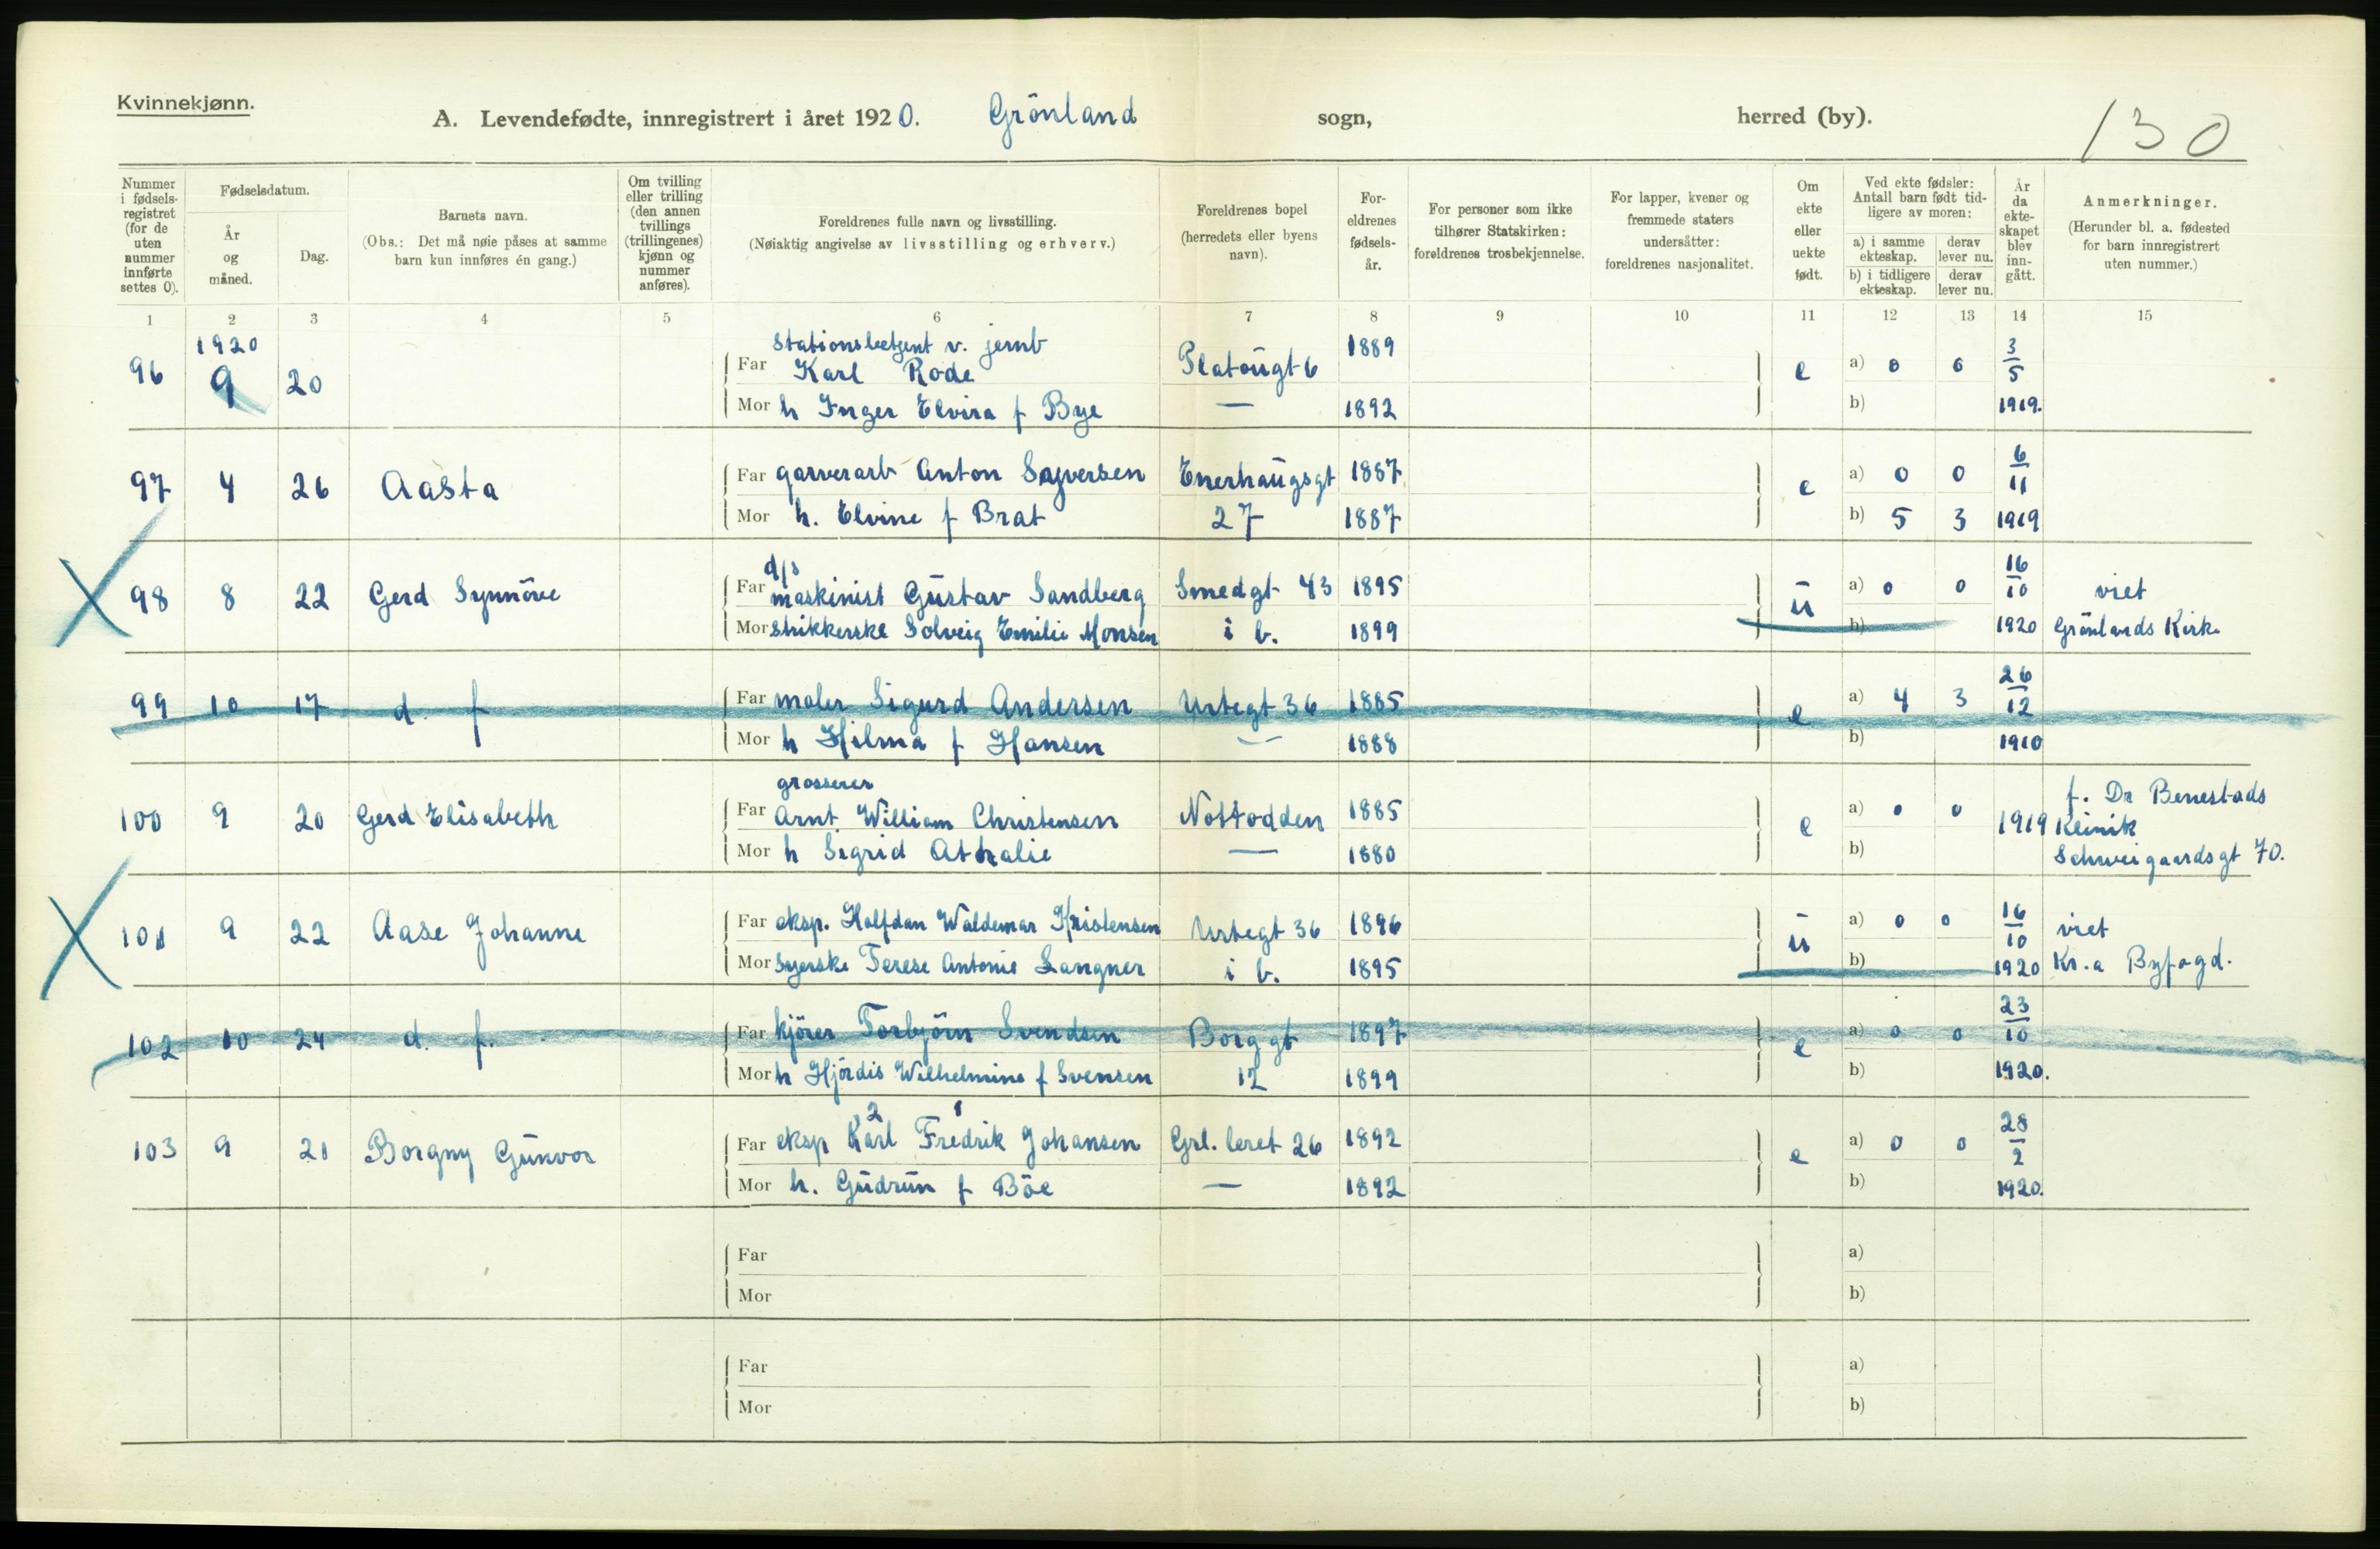 Kvinnekjønn.
A. Levendefødte, innregistrert i året 1920. Grönland sogn, herred (by). 130
Nummer i fødsels-registret (for de uten nummer innførte settes 0).
Fødselsdatum.
År og måned.
Dag.
Barnets navn.
(Obs.: Det må nøie påses at samme barn kun innføres én gang.)
Om tvilling eller trilling (den annen tvillings (trillingenes) kjønn og nummer anføres).
Foreldrenes fulle navn og livsstilling.
(Nøiaktig angivelse av livsstilling og erhverv.)
Foreldrenes bopel (herredets eller byens navn).
For-eldrenes fødsels-år.
For personer som ikke tilhører Statskirken: foreldrenes trosbekjennelse.
For lapper, kvener og fremmede staters undersåtter: foreldrenes nasjonalitet.
Om ekte eller uekte født.
Ved ekte fødsler: Antall barn født tid-ligere av moren:
a) i samme ekteskap. derav lever nu.
b) i tidligere ekteskap. derav lever nu.
År da ekte-skapet blev inn-gått.
Anmerkninger.
(Herunder bl. a. fødested for barn innregistrert uten nummer.)
1 2 3 4 5 6 7 8 9 10 11 12 13 14 15
1920 v. jernb
96 9 20 Far Karl Rode Platougt 6 1889 e a) 0 0 3/5
Mor h Inger Elvira f Bye — 1892 b) 1919.
97 4 26 Aasta Far garverarb Anton Syversen Enerhaugsgt 1887 e a) 0 0 6/11
Mor h. Elvine f Brat 27 1887 b) 5 3 1919
d/s
98 8 22 Gerd Synnöve Far maskinist Gustav Sandberg Smedgt 43 1895 u a) 0 0 16/10 viet
Mor strikkerske Solveig Emilie Monsen i b. 1899 b) 1920 Grönlands Kirke
99 10 17 d. f Far maler Sigurd Andersen Urtegt 36 1885 e a) 4 3 26/12
Mor h Hilma f Hansen — 1888 b) 1910
grosserer f. Dr Benestads
100 9 20 Gerd Elisabeth Far Arnt William Christensen Nottodden 1885 e a) 0 0 1919 Klinik
Mor h Sigrid Athalie — 1880 b) Schweigaardsgt 70.
101 9 22 Aase Johanne Far eksp. Halfdan Waldemar Kristensen Urtegt 36 1896 u a) 0 0 16/10 viet
Mor Syerske Terese Antonie Langner i b. 1895 b) 1920 Kr.a Byfogd.
102 10 24 d. f. Far kjörer Torbjörn Svendsen Borggt 1897 e a) 0 0 23/10
Mor h Hjördis Wilhelmine f Svensen 12 1899 b) 1920.
2 1
103 9 21 Borgny Gunvor Far eksp Karl Fredrik Johansen Grl. leret 26 1892 e a) 0 0 28/2
Mor h. Gudrun f Böe — 1892 b) 1920.
Far a)
Mor b)
Far a)
Mor b)